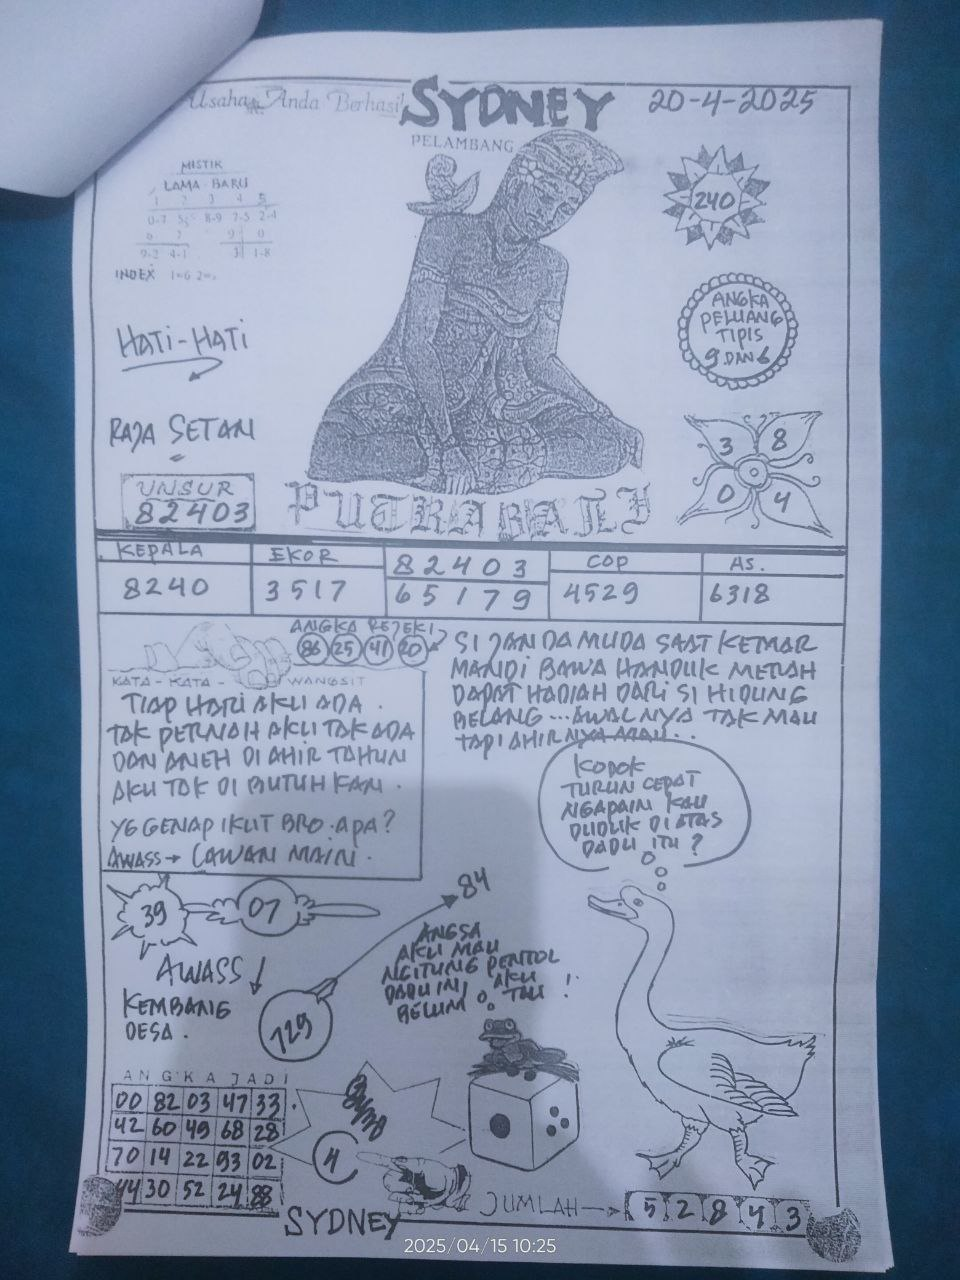 Usaha Anda Berhasil
SYDNEY
20-4-2025
PELAMBANG
MISTIK
LAMA BARU
1 2 3 4 5
0-7 8-9 7-5 2-4
6 7 9 0
9-2 4-1 3 1-8
INDEX 1=6
240
ANGKA
PELUANG
TIPIS
9 DAN 6
HATI-HATI
RAJA SETAN
UNSUR
82403
3 8
0 4
PUTRA BALI
KEPALA
8240
EKOR
3517
82403
65179
COP
4529
AS.
6318
ANGKA REJEKI
86 25 41 20
KATA - KATA - WANGSIT
TIAP HARI AKU ADA.
TAK PERNAH AKU TAK ADA
DAN ANEH DI AHIR TAHUN
AKU TAK DI BUTUH KAN.
YG GENAP IKUT BRO. APA?
AWASS → LAWAN MAIN.
SI JANDA MUDA SAAT KELUAR
MANDI BAWA HANDUK MERAH
DAPAT HADIAH DARI SI HIDUNG
BELANG ... AWALNYA TAK MAU
TAPI AHIRNYA
KODOK
TURUN CEPAT
NGAPAIN KAU
DUDUK DI ATAS
DADU ITU ?
39
07
84
AWASS ↓
KEMBANG
DESA.
729
ANGSA
AKU MAU
NGITUNG PENTOL
DADU INI, AKU
BELUM TAU !
ANGKA JADI
00 82 03 47 33
42 60 49 68 28
70 14 22 93 02
44 30 52 24 88
4
JUMLAH → 5 2 8 4 3
SYDNEY
2025/04/15 10:25